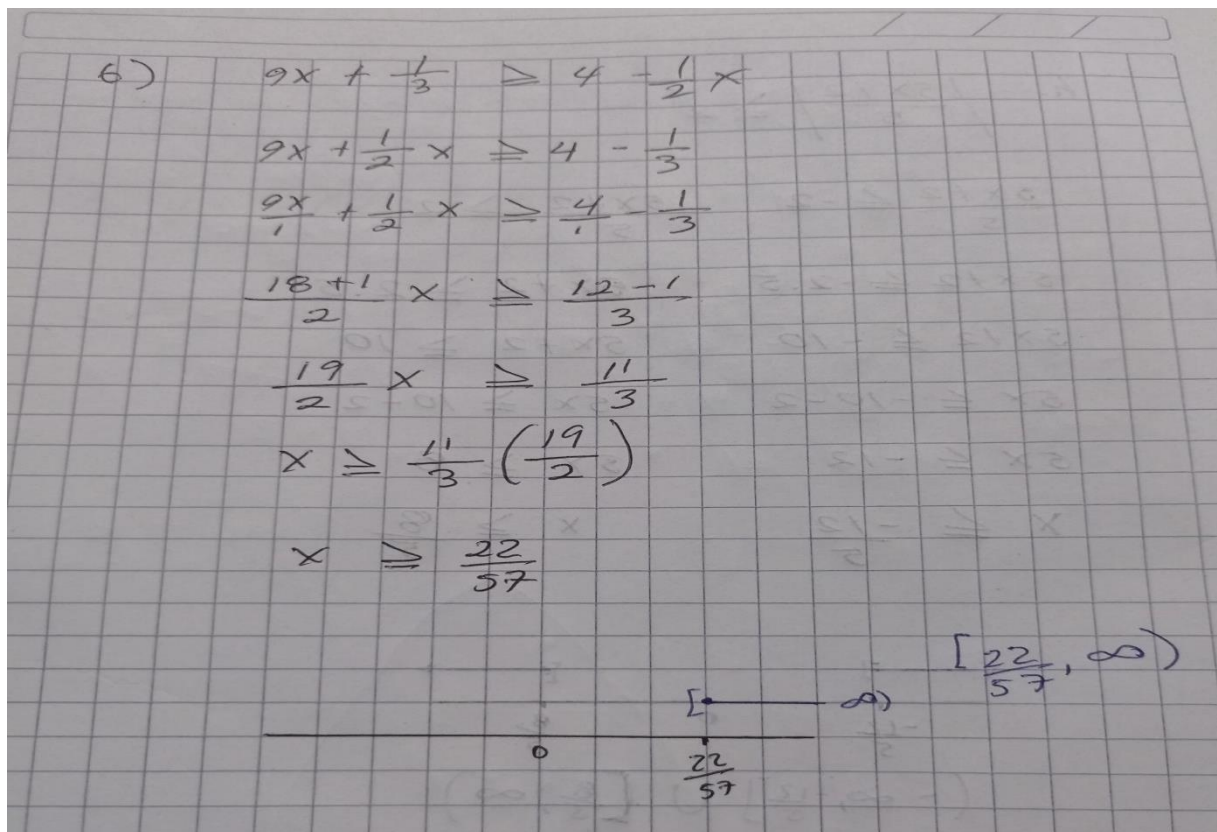 6) 9x + 1/3 ≥ 4 - 1/2 x
9x + 1/2 x ≥ 4 - 1/3
9x/1 + 1/2 x ≥ 4/1 - 1/3
18+1/2 x ≥ 12-1/3
19/2 x ≥ 11/3
x ≥ 11/3 (19/2)
x ≥ 22/57
[22/57, ∞)
[ ∞)
0 22/57